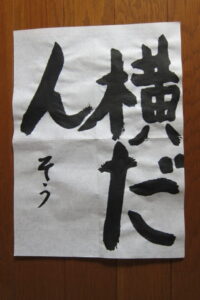 横だ
ん
そう